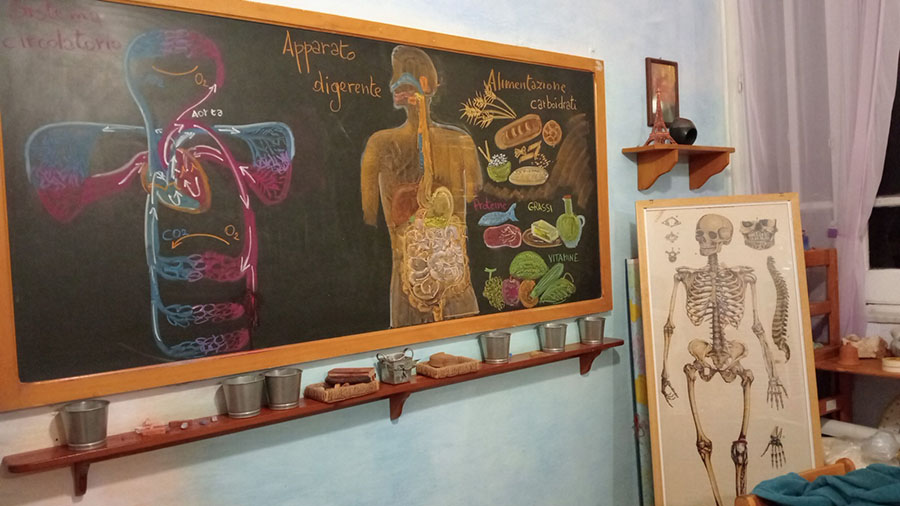 sistema
circolatorio
O2
Aorta
CO2
O2
Apparato
digerente
Alimentazione
carboidrati
Proteine
GRASSI
VITAMINE